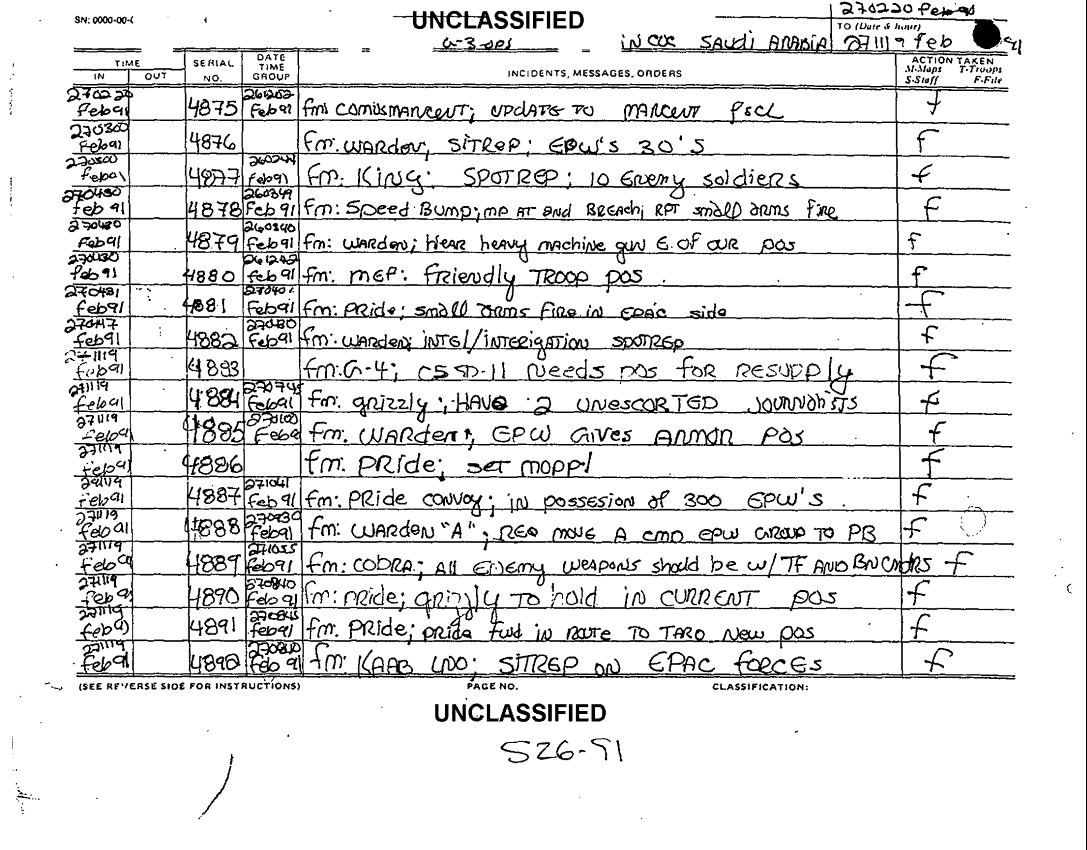 SN: 0000-00-(
UNCLASSIFIED
270220 Feb 91
TO (Date & hour)
G-3 OPS
IN COC SAUDI ARABIA 271119 Feb 91
TIME
IN OUT
SERIAL NO.
DATE TIME GROUP
INCIDENTS, MESSAGES, ORDERS
ACTION TAKEN
M-Maps T-Troops
S-Staff F-File
270220 Feb91 4875 261202 Feb91 fm: COMUSMARCENT; UPDATE TO MARCENT FSCL f
270300 Feb91 4876 fm: WARDEN; SITREP; EPW'S 30'S f
270300 Feb91 4877 260244 Feb91 fm: King: SPOTREP; 10 Enemy soldiers f
270430 Feb 91 4878 260349 Feb 91 fm: Speed Bump; MP AT 2nd BREACH; RPT small arms fire f
270430 Feb91 4879 260340 Feb 91 fm: WARDEN; Hear heavy machine gun E. of OUR pos f
270430 Feb 91 4880 261202 Feb 91 fm: MEF: friendly TROOP pos f
270431 Feb91 4881 Feb91 fm: PRide; small arms fire in EPAC side f
Feb91 4882 270430 Feb91 fm: WARDEN; INTEL/INTERIGATION SPOTREP f
271119 Feb91 4883 fm: G-4; CSSD-11 Needs pos for RESUPPLY f
271119 Feb91 4884 270745 Feb91 fm: grizzly; HAVE 2 UNESCORTED JOURNALISTS f
271119 Feb91 4885 Feb91 fm: WARDEN; EPW GIVES ARMOR POS f
271119 Feb91 4886 fm: PRide; set mopp 1 f
271119 Feb91 4887 271041 Feb91 fm: PRide convoy; in possesion of 300 EPW'S. f
271119 Feb 91 4888 270930 Feb91 fm: WARDEN "A"; REQ move A cmd EPW GROUP TO PB f
271119 Feb 91 4889 271055 Feb91 fm: COBRA; All Enemy weapons should be w/ TF AND BN CMDRS f
271119 Feb91 4890 270840 Feb 91 fm: PRide; grizzly TO hold in CURRENT pos f
271119 Feb 91 4891 270845 Feb 91 fm: PRide; pride fwd in Route TO TARO New pos f
271119 Feb91 4892 Feb 91 fm: KAAB LNO; SITREP on EPAC forces f
(SEE REVERSE SIDE FOR INSTRUCTIONS) PAGE NO. CLASSIFICATION:
UNCLASSIFIED
S26-91